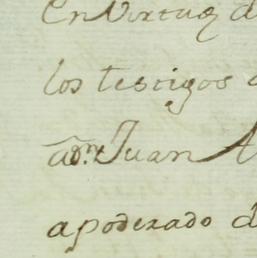 En Virtud d
los testigos
a Dn Juan A
apoderado d